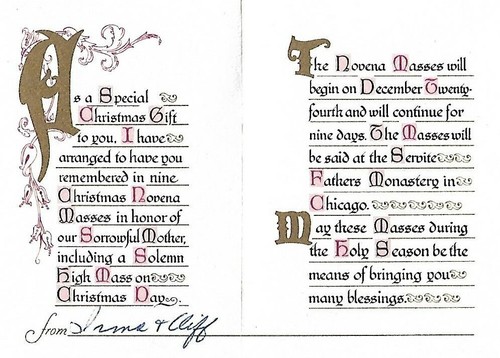 As a Special
Christmas Gift
to you, I have
arranged to have you
remembered in nine
Christmas Novena
Masses in honor of
our Sorrowful Mother,
including a Solemn
High Mass on
Christmas Day.
from Irma & Cliff
The Novena Masses will
begin on December Twenty-
fourth and will continue for
nine days. The Masses will
be said at the Servite
Fathers Monastery in
Chicago.
May these Masses during
the Holy Season be the
means of bringing you
many blessings.